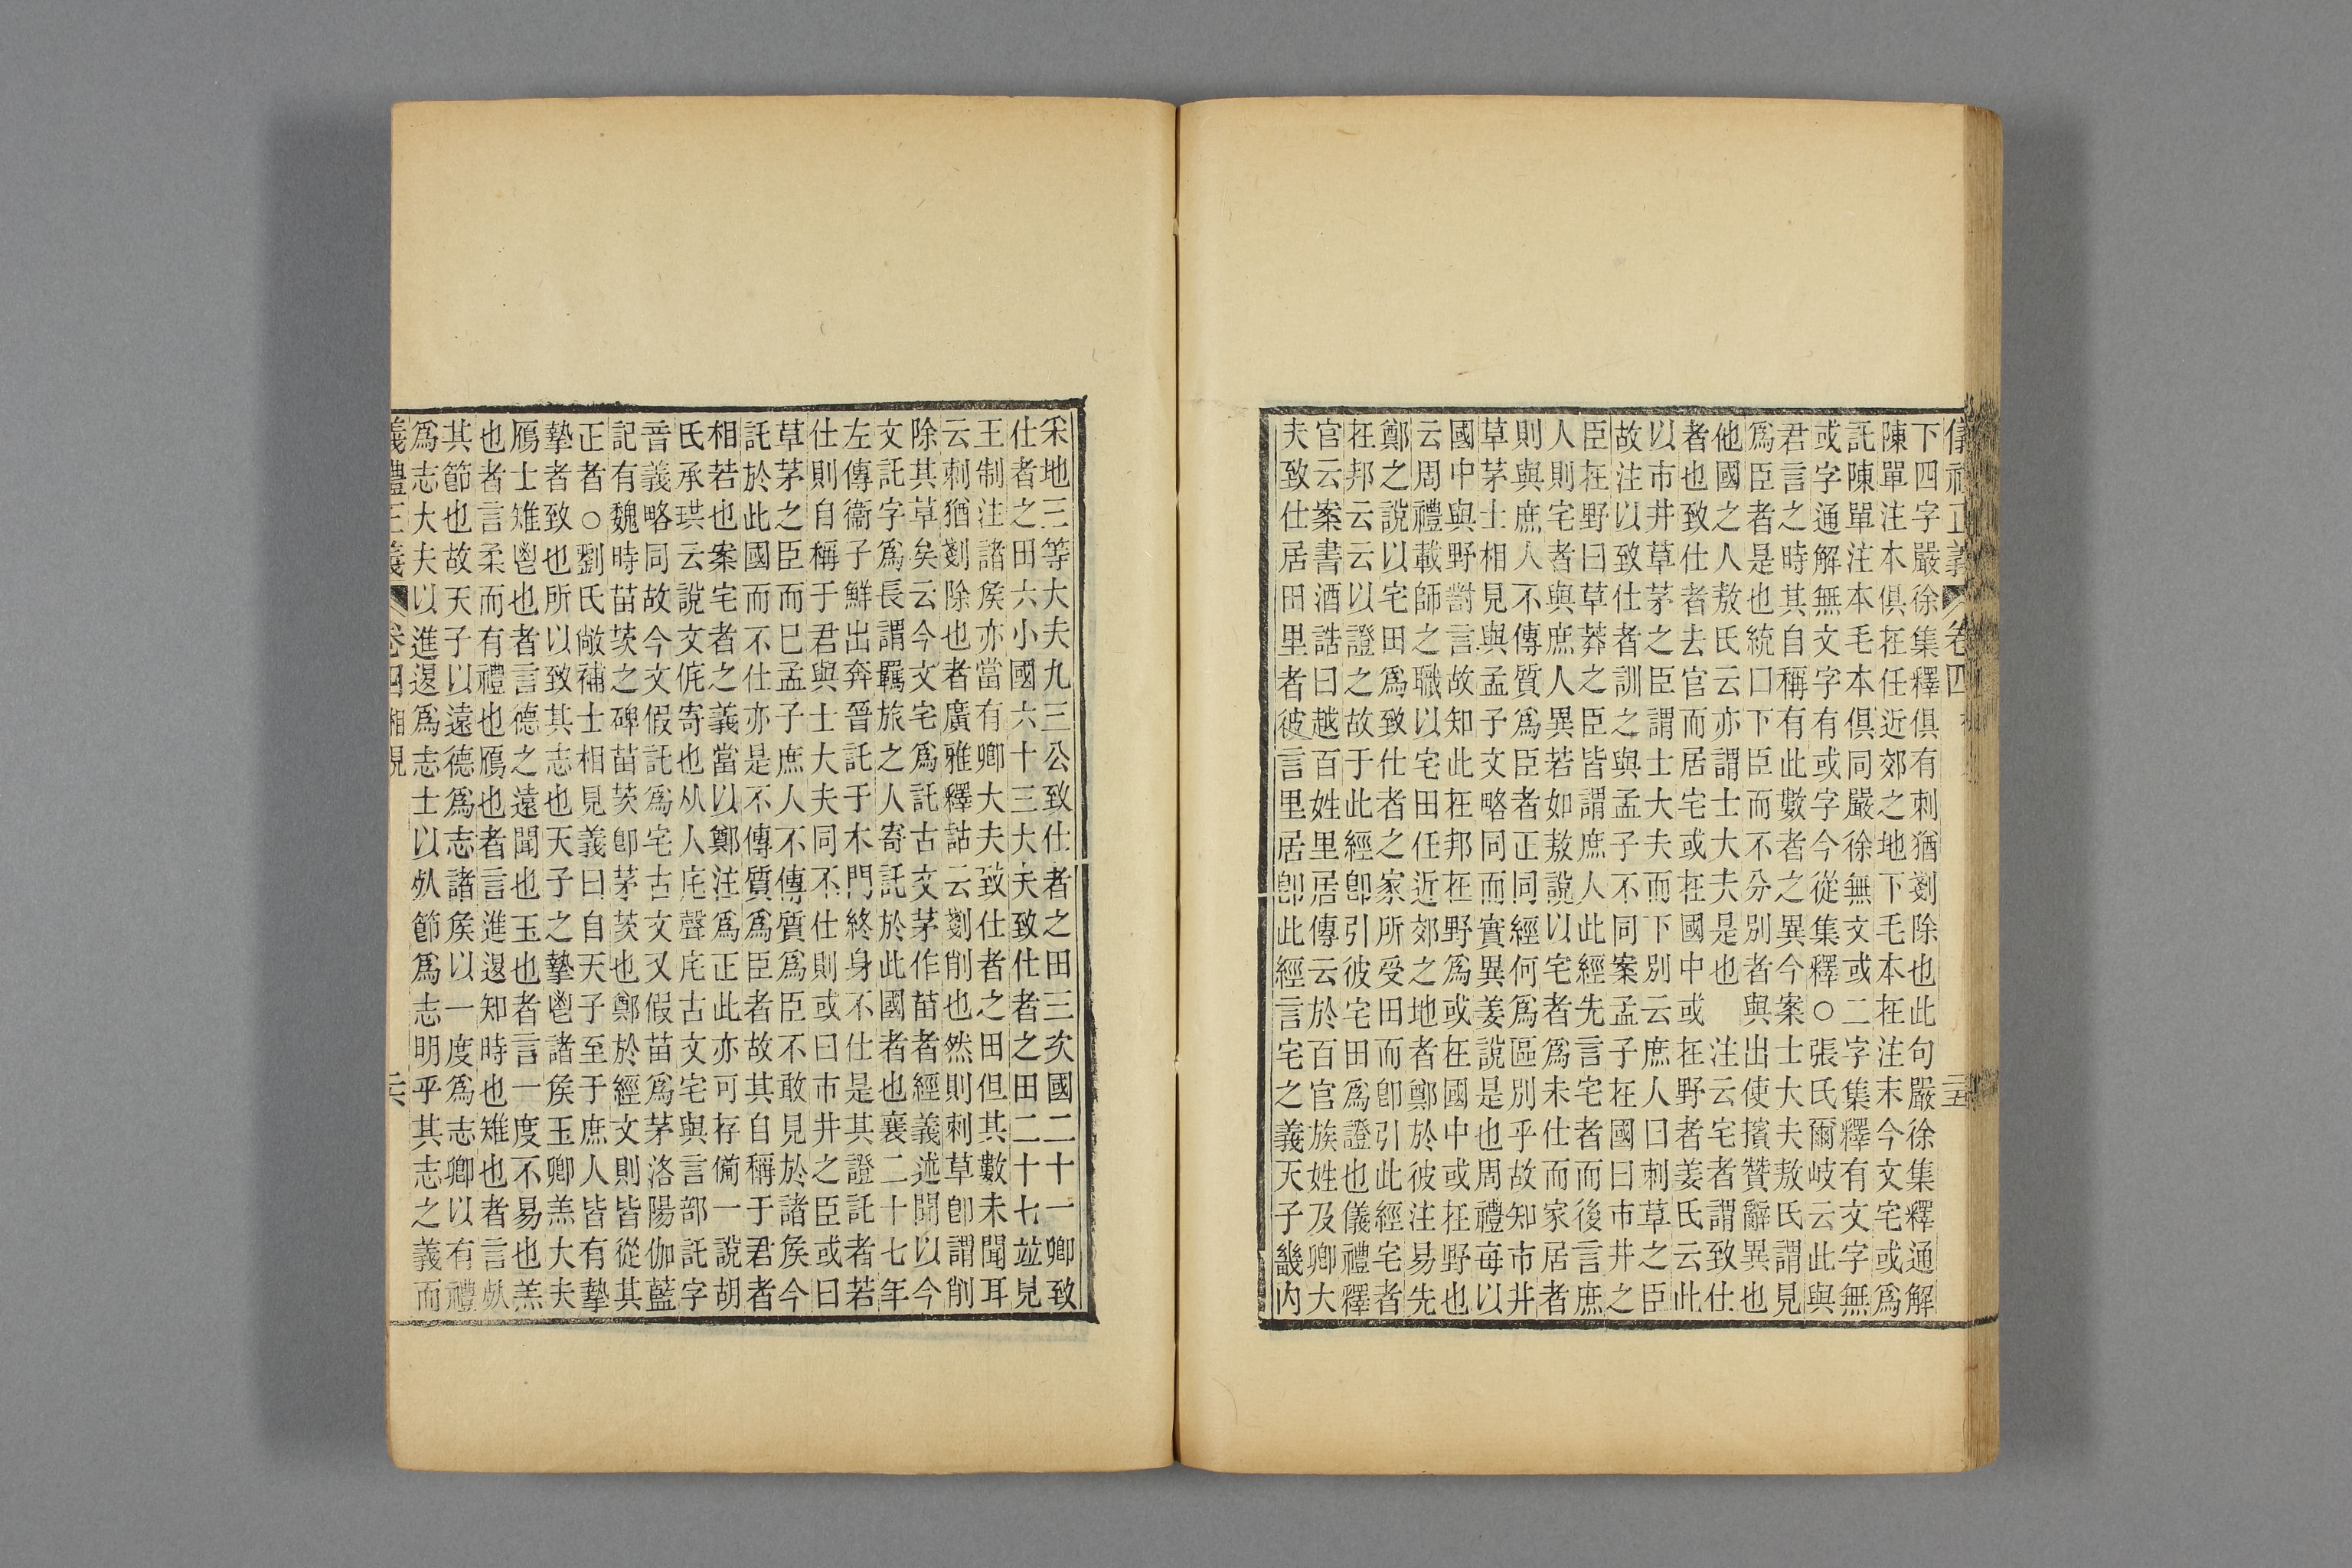 儀禮正義 卷四 二五
下四字嚴徐集釋俱有刺猶剗除也此句嚴徐集釋通解
陳單注本俱在任近郊之地下毛本在注末今文宅或爲
託陳單注本毛本俱同嚴徐無文或二字集釋有文字無
或字通解無文字有或字今從集釋○張氏爾岐云此與
君言之時其自稱有此數者之異今案士大夫敖氏謂見
爲臣者是也統口下臣而不分別者與出使擯贊辭異也
他國之人敖氏云亦謂士大夫是也　注云宅者謂致仕
者也致仕者去官而居宅或在國中或在野者姜氏云此
以市井草茅之臣謂士大夫而下別云庶人曰刺草之臣
故注以致仕者訓之與孟子不同案孟子在國曰市井之
臣在野曰草莽之臣皆謂庶人此經先言宅者而後言庶
人則宅者與庶人異若如敖說以宅者爲未仕而家居者
則與庶人不傳質爲臣者正同經何爲區別乎故知市井
草茅士相見與孟子文略同而實異姜說是也周禮每以
國中與野對言故知此在邦在野爲或在國中或在野也
云周禮載師之職以宅田任近郊之地者鄭於彼注易先
鄭之說以宅田爲致仕者之家所受田而卽引此經宅者
在邦云云以證之故于此經卽引彼宅田爲證也儀禮釋
官云案書酒誥曰越百姓里居傳云於百官族姓及卿大
夫致仕居田里者彼言里居卽此經言宅之義天子畿內
采地三等大夫九三公致仕者之田三次國二十一卿致
仕者之田六小國六十三大夫致仕者之田二十七竝見
王制注諸侯亦當有卿大夫致仕者之田但其數未聞耳
云刺猶剗除也者廣雅釋詁云剗削也然則刺草卽謂削
除其草矣云今文宅爲託古文茅作苗者經義述聞以今
文託字爲長謂羈旅之人寄託於此國者也襄二十七年
左傳衞子鮮出奔晉託于木門終身不仕是其證託者若
仕則自稱于君與士大夫同不仕則或曰市井之臣或曰
草茅之臣而巳孟子庶人不傳質爲臣不敢見於諸侯今
託於此國而不仕亦是不傳質爲臣者故其自稱于君者
相若也案宅者之義當以鄭注爲正此亦可存備一說胡
氏承珙云說文侂寄也从人㡯聲㡯古文宅與言部託字
音義略同故今文假託爲宅古文又假苗爲茅洛陽伽藍
記有魏時苗茨之碑苗茨卽茅茨也鄭於經文則皆從其
正者○劉氏敞補士相見義曰自天子至于庶人皆有摯
摯者致也所以致其志也天子之摯鬯諸侯玉卿羔大夫
鴈士雉鬯也者言德之遠聞也玉也者言一度不易也羔
也者言柔而有禮也鴈也者言進退知時也雉也者言死
其節也故天子以遠德爲志諸侯以一度爲志卿以有禮
爲志大夫以進退爲志士以死節爲志明乎其志之義而
儀禮正義 卷四 相見 二六